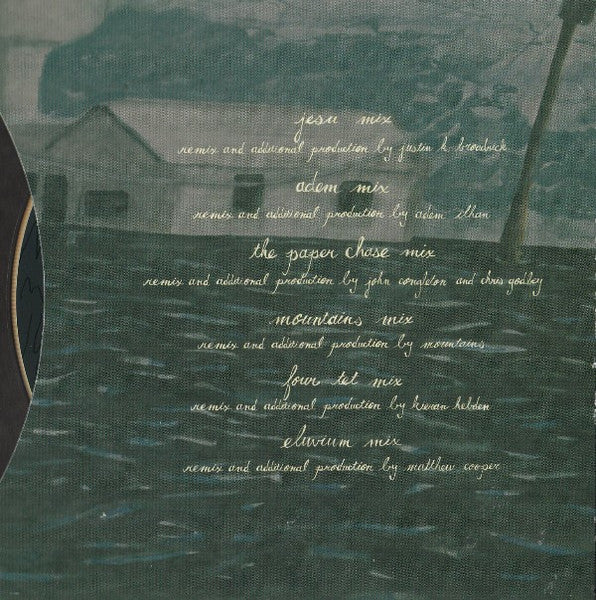 jesu mix
remix and additional production by justin k broadrick
adem mix
remix and additional production by adem ilhan
the paper chase mix
remix and additional production by john congleton and chris godbey
mountains mix
remix and additional production by mountains
four tet mix
remix and additional production by kieran hebden
eluvium mix
remix and additional production by matthew cooper